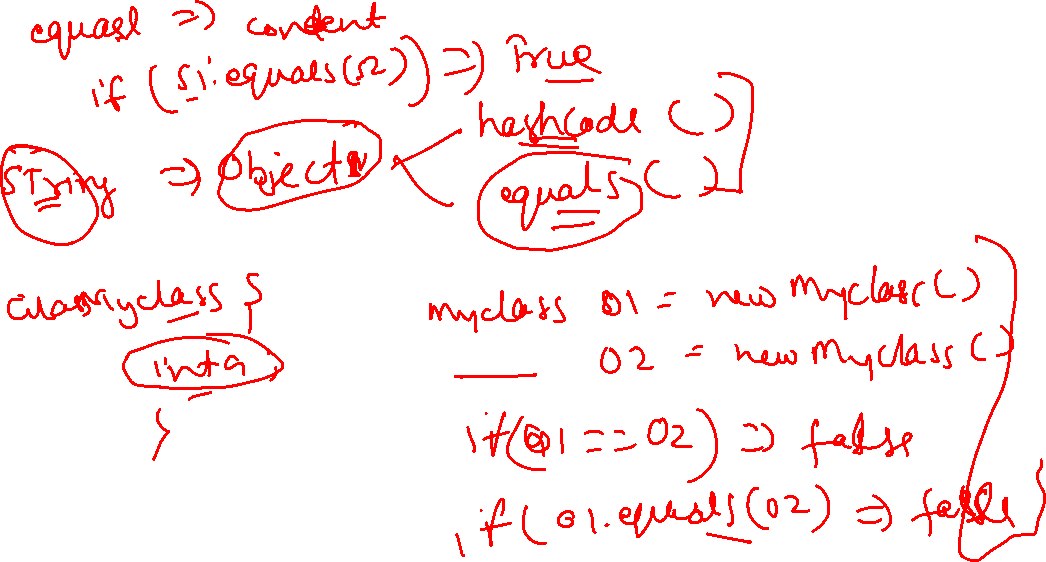 equasl => content
if (S1.equals(S2)) => True
hashCode ( )
String => Object
equals ( )
class Myclass {
int a
}
myclass 01 = new Myclass ( )
02 = new Myclass ( )
if(01 == 02) => false
if ( 01.equals (02) => false